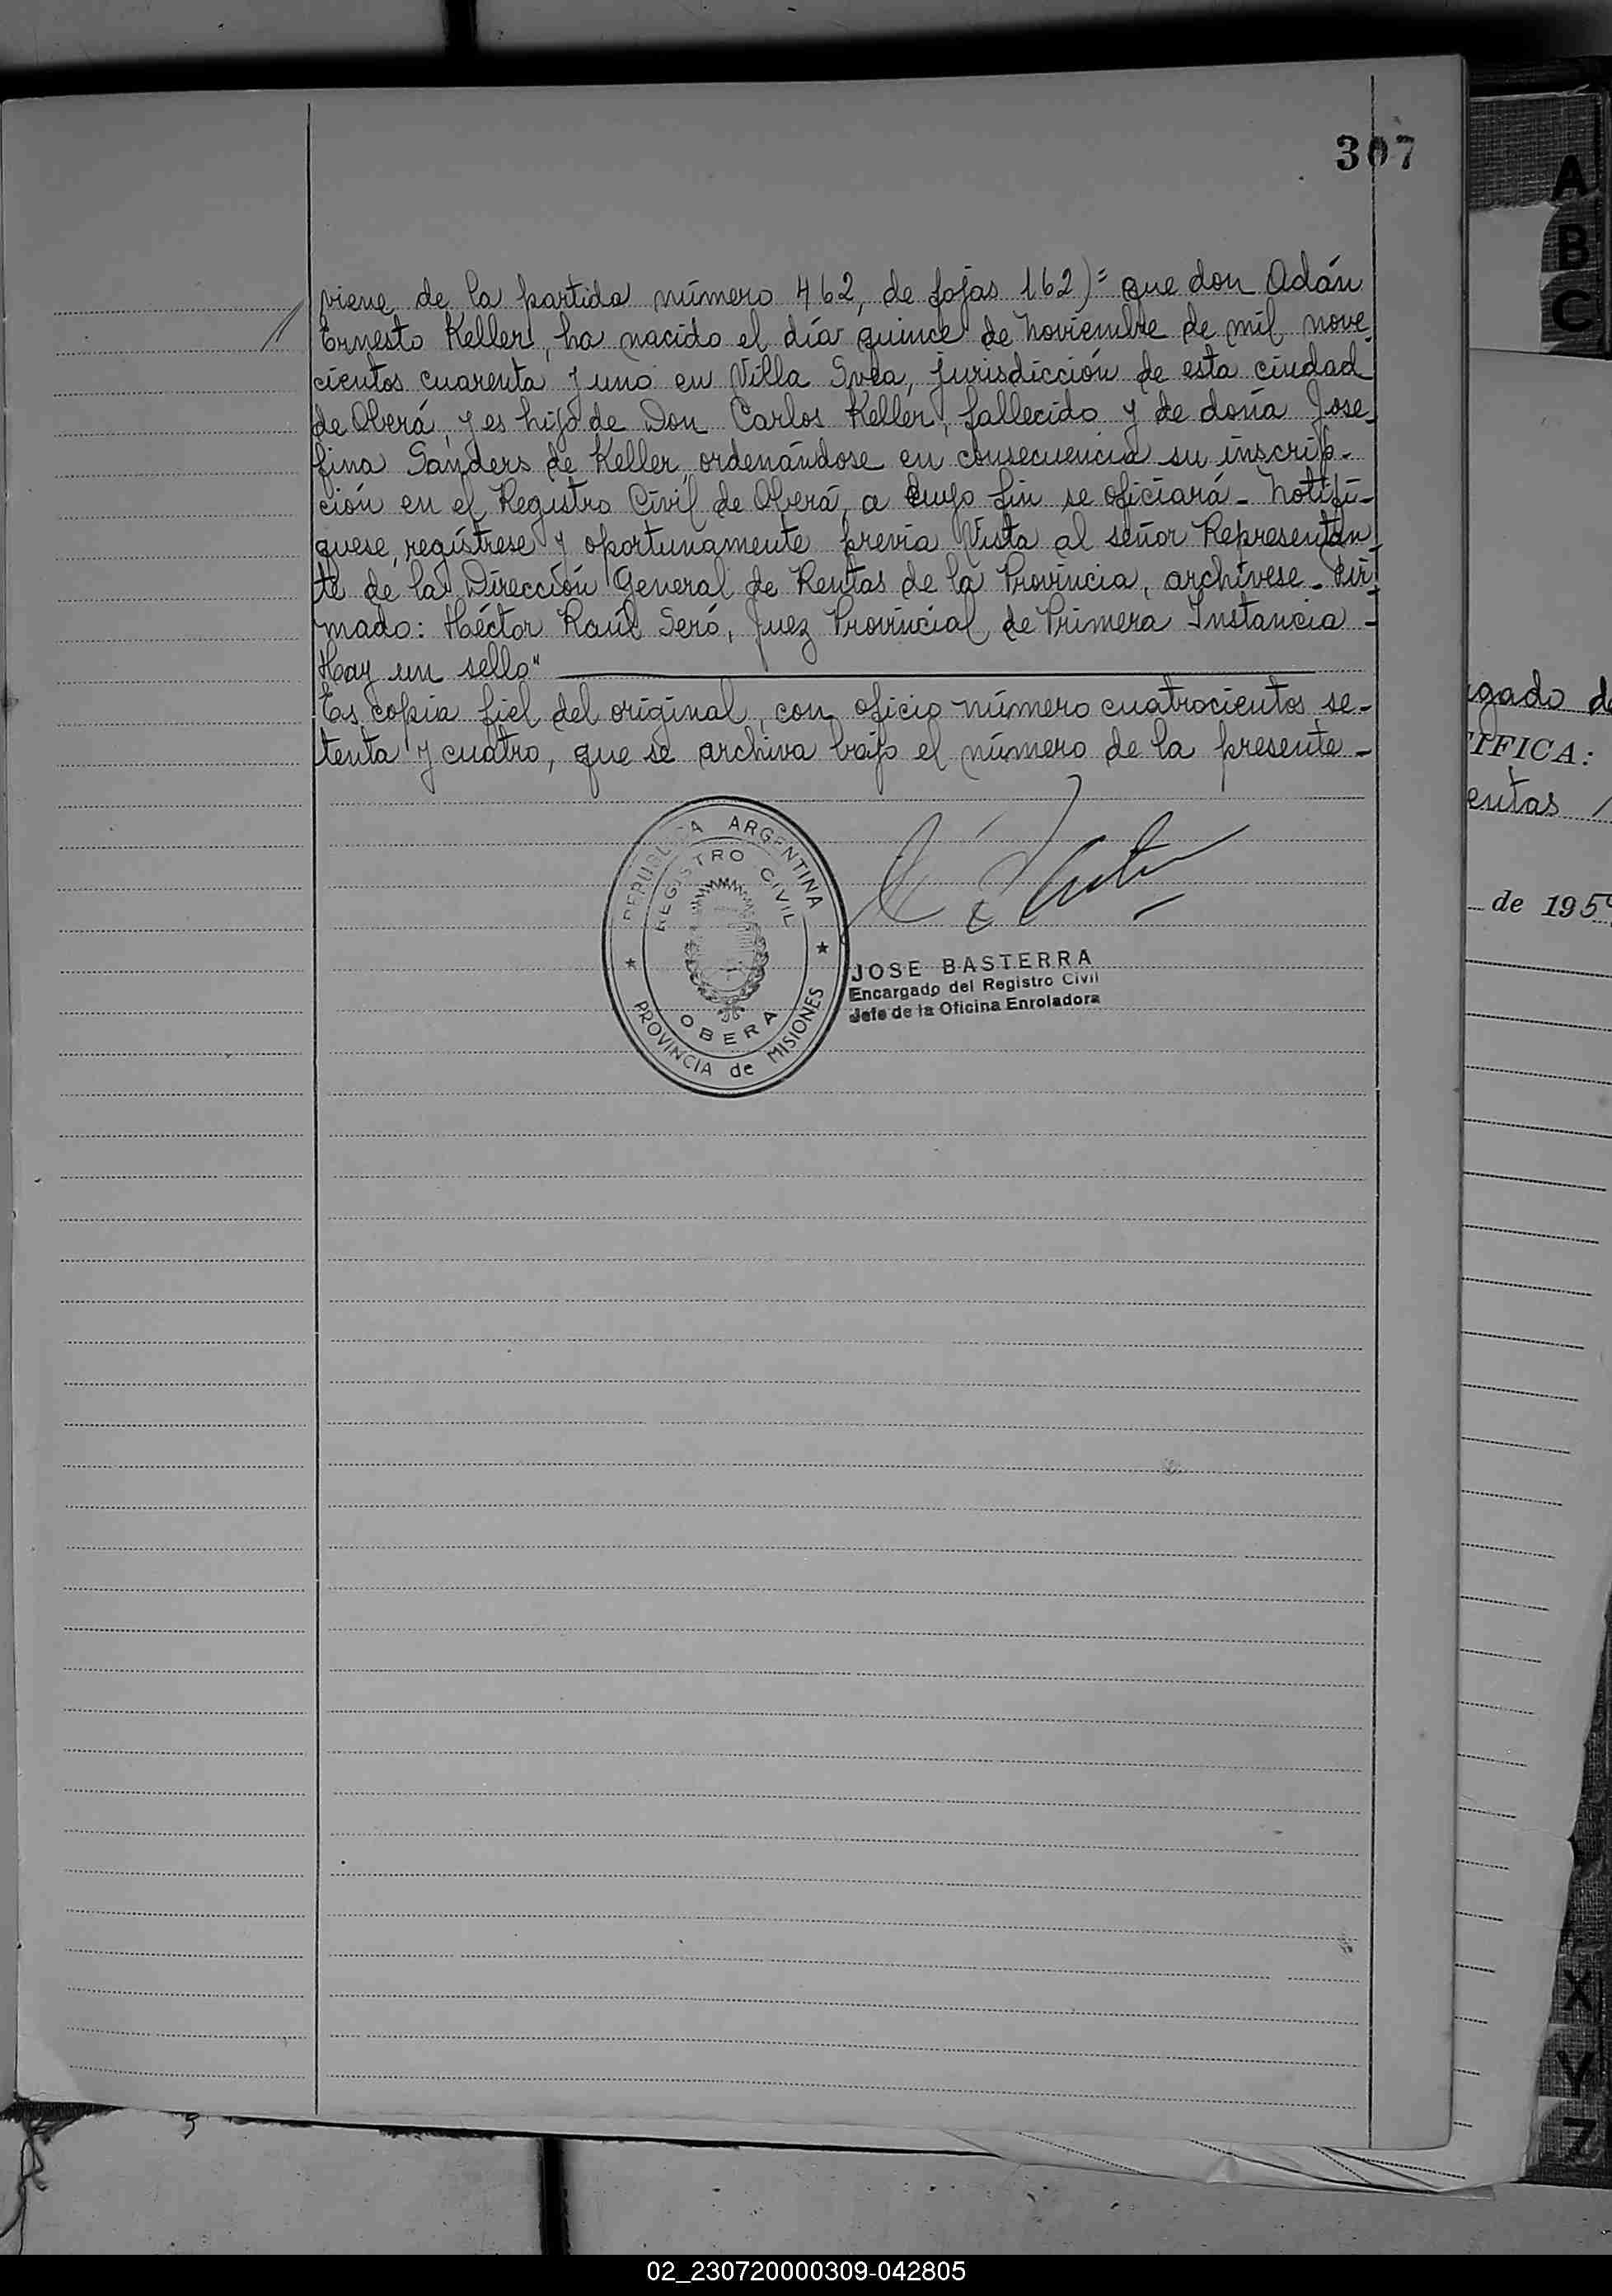 307
viene de la partida número 462, de fojas 162)= que don Adán
Ernesto Keller, ha nacido el día quince de Noviembre de mil nove
cientos cuarenta y uno en Villa Svea, jurisdicción de esta ciudad
de Oberá, y es hijo de Don Carlos Keller, fallecido y de doña Jose_
fina Sanders de Keller, ordenándose en consecuencia su inscrip-
ción en el Registro Civil de Oberá, a cuyo fin se oficiará - Notifí-
quese, regístrese y oportunamente previa Vista al señor Representan
te de la Dirección General de Rentas de la Provincia, archívese - Fir
mado: Héctor Raúl Seró, Juez Provincial de Primera Instancia -
Hay un sello"
Es copia fiel del original, con oficio número cuatrocientos se-
tenta y cuatro, que se archiva bajo el número de la presente -
REPUBLICA ARGENTINA
REGISTRO CIVIL
OBERA
PROVINCIA de MISIONES
JOSE BASTERRA
Encargado del Registro Civil
Jefe de la Oficina Enroladora
A
B
C
gado de
TIFICA:
entas
de 195
X
Y
Z
02_230720000309-042805